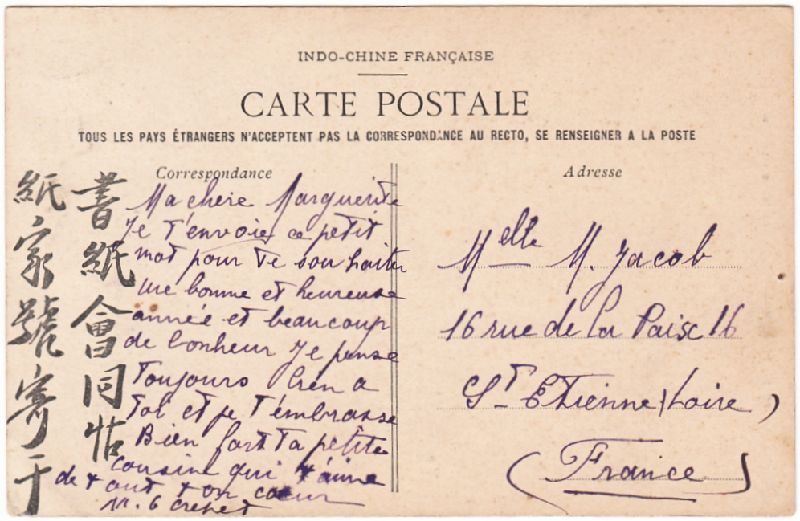 INDO-CHINE FRANÇAISE
CARTE POSTALE
TOUS LES PAYS ÉTRANGERS N'ACCEPTENT PAS LA CORRESPONDANCE AU RECTO, SE RENSEIGNER A LA POSTE
Correspondance
Ma chere Marguerite
Je t'envoie ce petit
mot pour te souhaiter
une bonne et heureuse
année et beaucoup
de bonheur Je pense
Toujours bien a
toi et je t'embrasse
Bien fort ta petite
cousine qui t'aime
de tout ton cœur
書紙會同帖
紙家號寄于
Adresse
Melle M. Jacob
16 rue de la Paix 16
St Etienne (Loire)
(France)